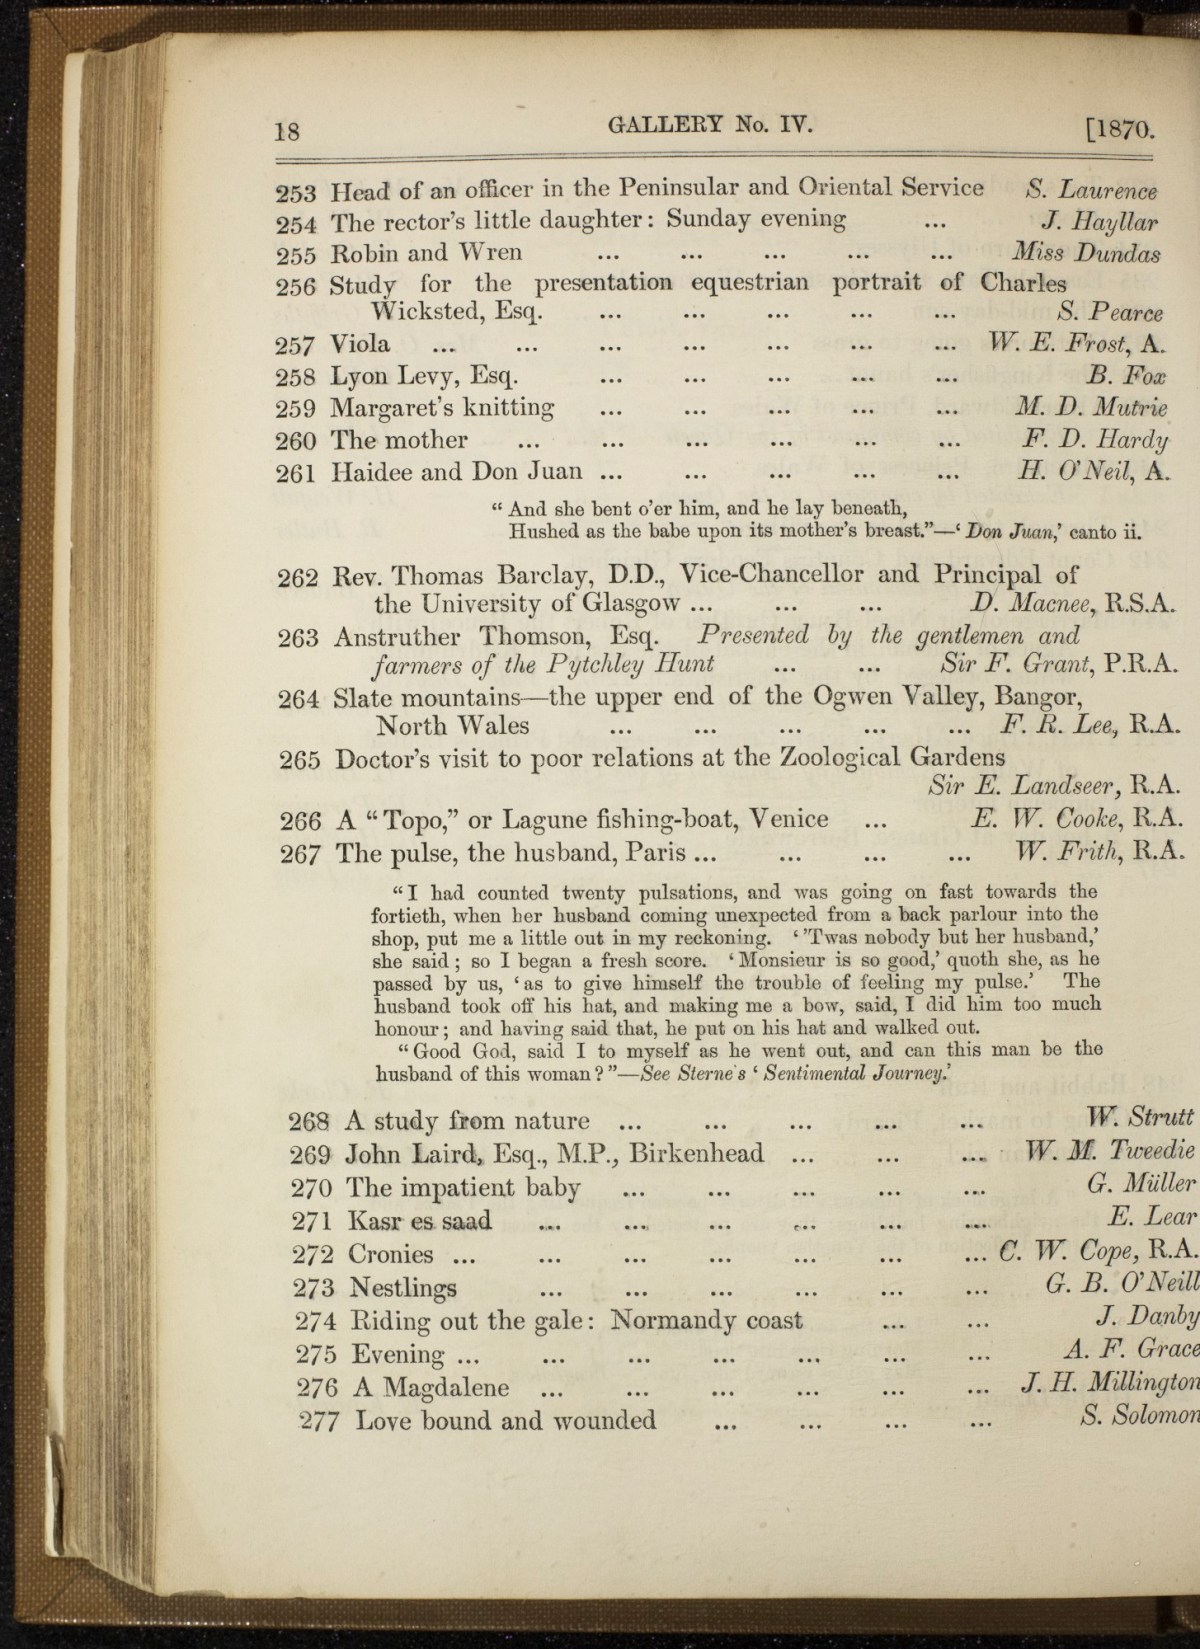 18 GALLERY No. IV. [1870.
253 Head of an officer in the Peninsular and Oriental Service S. Laurence
254 The rector's little daughter: Sunday evening ... J. Hayllar
255 Robin and Wren ... ... ... ... ... Miss Dundas
256 Study for the presentation equestrian portrait of Charles
Wicksted, Esq. ... ... ... ... ... S. Pearce
257 Viola ... ... ... ... ... ... ... W. E. Frost, A.
258 Lyon Levy, Esq. ... ... ... ... ... B. Fox
259 Margaret's knitting ... ... ... ... ... M. D. Mutrie
260 The mother ... ... ... ... ... ... F. D. Hardy
261 Haidee and Don Juan ... ... ... ... ... H. O'Neil, A.
“And she bent o'er him, and he lay beneath,
Hushed as the babe upon its mother's breast.”—‘Don Juan,’ canto ii.
262 Rev. Thomas Barclay, D.D., Vice-Chancellor and Principal of
the University of Glasgow ... ... ... D. Macnee, R.S.A.
263 Anstruther Thomson, Esq. Presented by the gentlemen and
farmers of the Pytchley Hunt ... ... Sir F. Grant, P.R.A.
264 Slate mountains—the upper end of the Ogwen Valley, Bangor,
North Wales ... ... ... ... ... F. R. Lee, R.A.
265 Doctor's visit to poor relations at the Zoological Gardens
Sir E. Landseer, R.A.
266 A “Topo,” or Lagune fishing-boat, Venice ... E. W. Cooke, R.A.
267 The pulse, the husband, Paris ... ... ... ... W. Frith, R.A.
“I had counted twenty pulsations, and was going on fast towards the
fortieth, when her husband coming unexpected from a back parlour into the
shop, put me a little out in my reckoning. ‘'Twas nobody but her husband,’
she said; so I began a fresh score. ‘Monsieur is so good,’ quoth she, as he
passed by us, ‘as to give himself the trouble of feeling my pulse.’ The
husband took off his hat, and making me a bow, said, I did him too much
honour; and having said that, he put on his hat and walked out.
“Good God, said I to myself as he went out, and can this man be the
husband of this woman?”—See Sterne's ‘Sentimental Journey.’
268 A study from nature ... ... ... ... ... W. Strutt
269 John Laird, Esq., M.P., Birkenhead ... ... ... W. M. Tweedie
270 The impatient baby ... ... ... ... ... G. Müller
271 Kasr es saad ... ... ... ... ... ... E. Lear
272 Cronies ... ... ... ... ... ... ... C. W. Cope, R.A.
273 Nestlings ... ... ... ... ... ... G. B. O'Neill
274 Riding out the gale: Normandy coast ... ... J. Danby
275 Evening ... ... ... ... ... ... ... A. F. Grace
276 A Magdalene ... ... ... ... ... ... J. H. Millington
277 Love bound and wounded ... ... ... ... S. Solomon